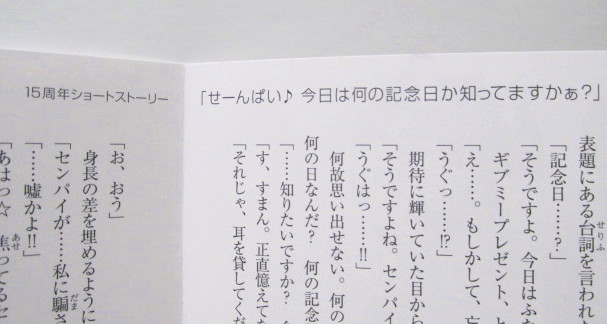 「せーんぱい♪ 今日は何の記念日か知ってますかぁ?」
表題にある台詞を言われた
「記念日……?」
「そうですよ。今日はふた
ギブミープレゼント、と
「え……。もしかして、忘
「うぐっ……!?」
期待に輝いていた目から
「そうですよね。センパイ
「うぐはっ……!!」
何故思い出せない。何の
何の日なんだ? 何の記念
「……知りたいですか?
「す、すまん。正直憶えてな
「それじゃ、耳を貸してくだ
15周年ショートストーリー
「お、おう」
身長の差を埋めるように
「センパイが……私に騙さ
「……嘘かよ!!」
「あはっ☆ 焦ってるセ